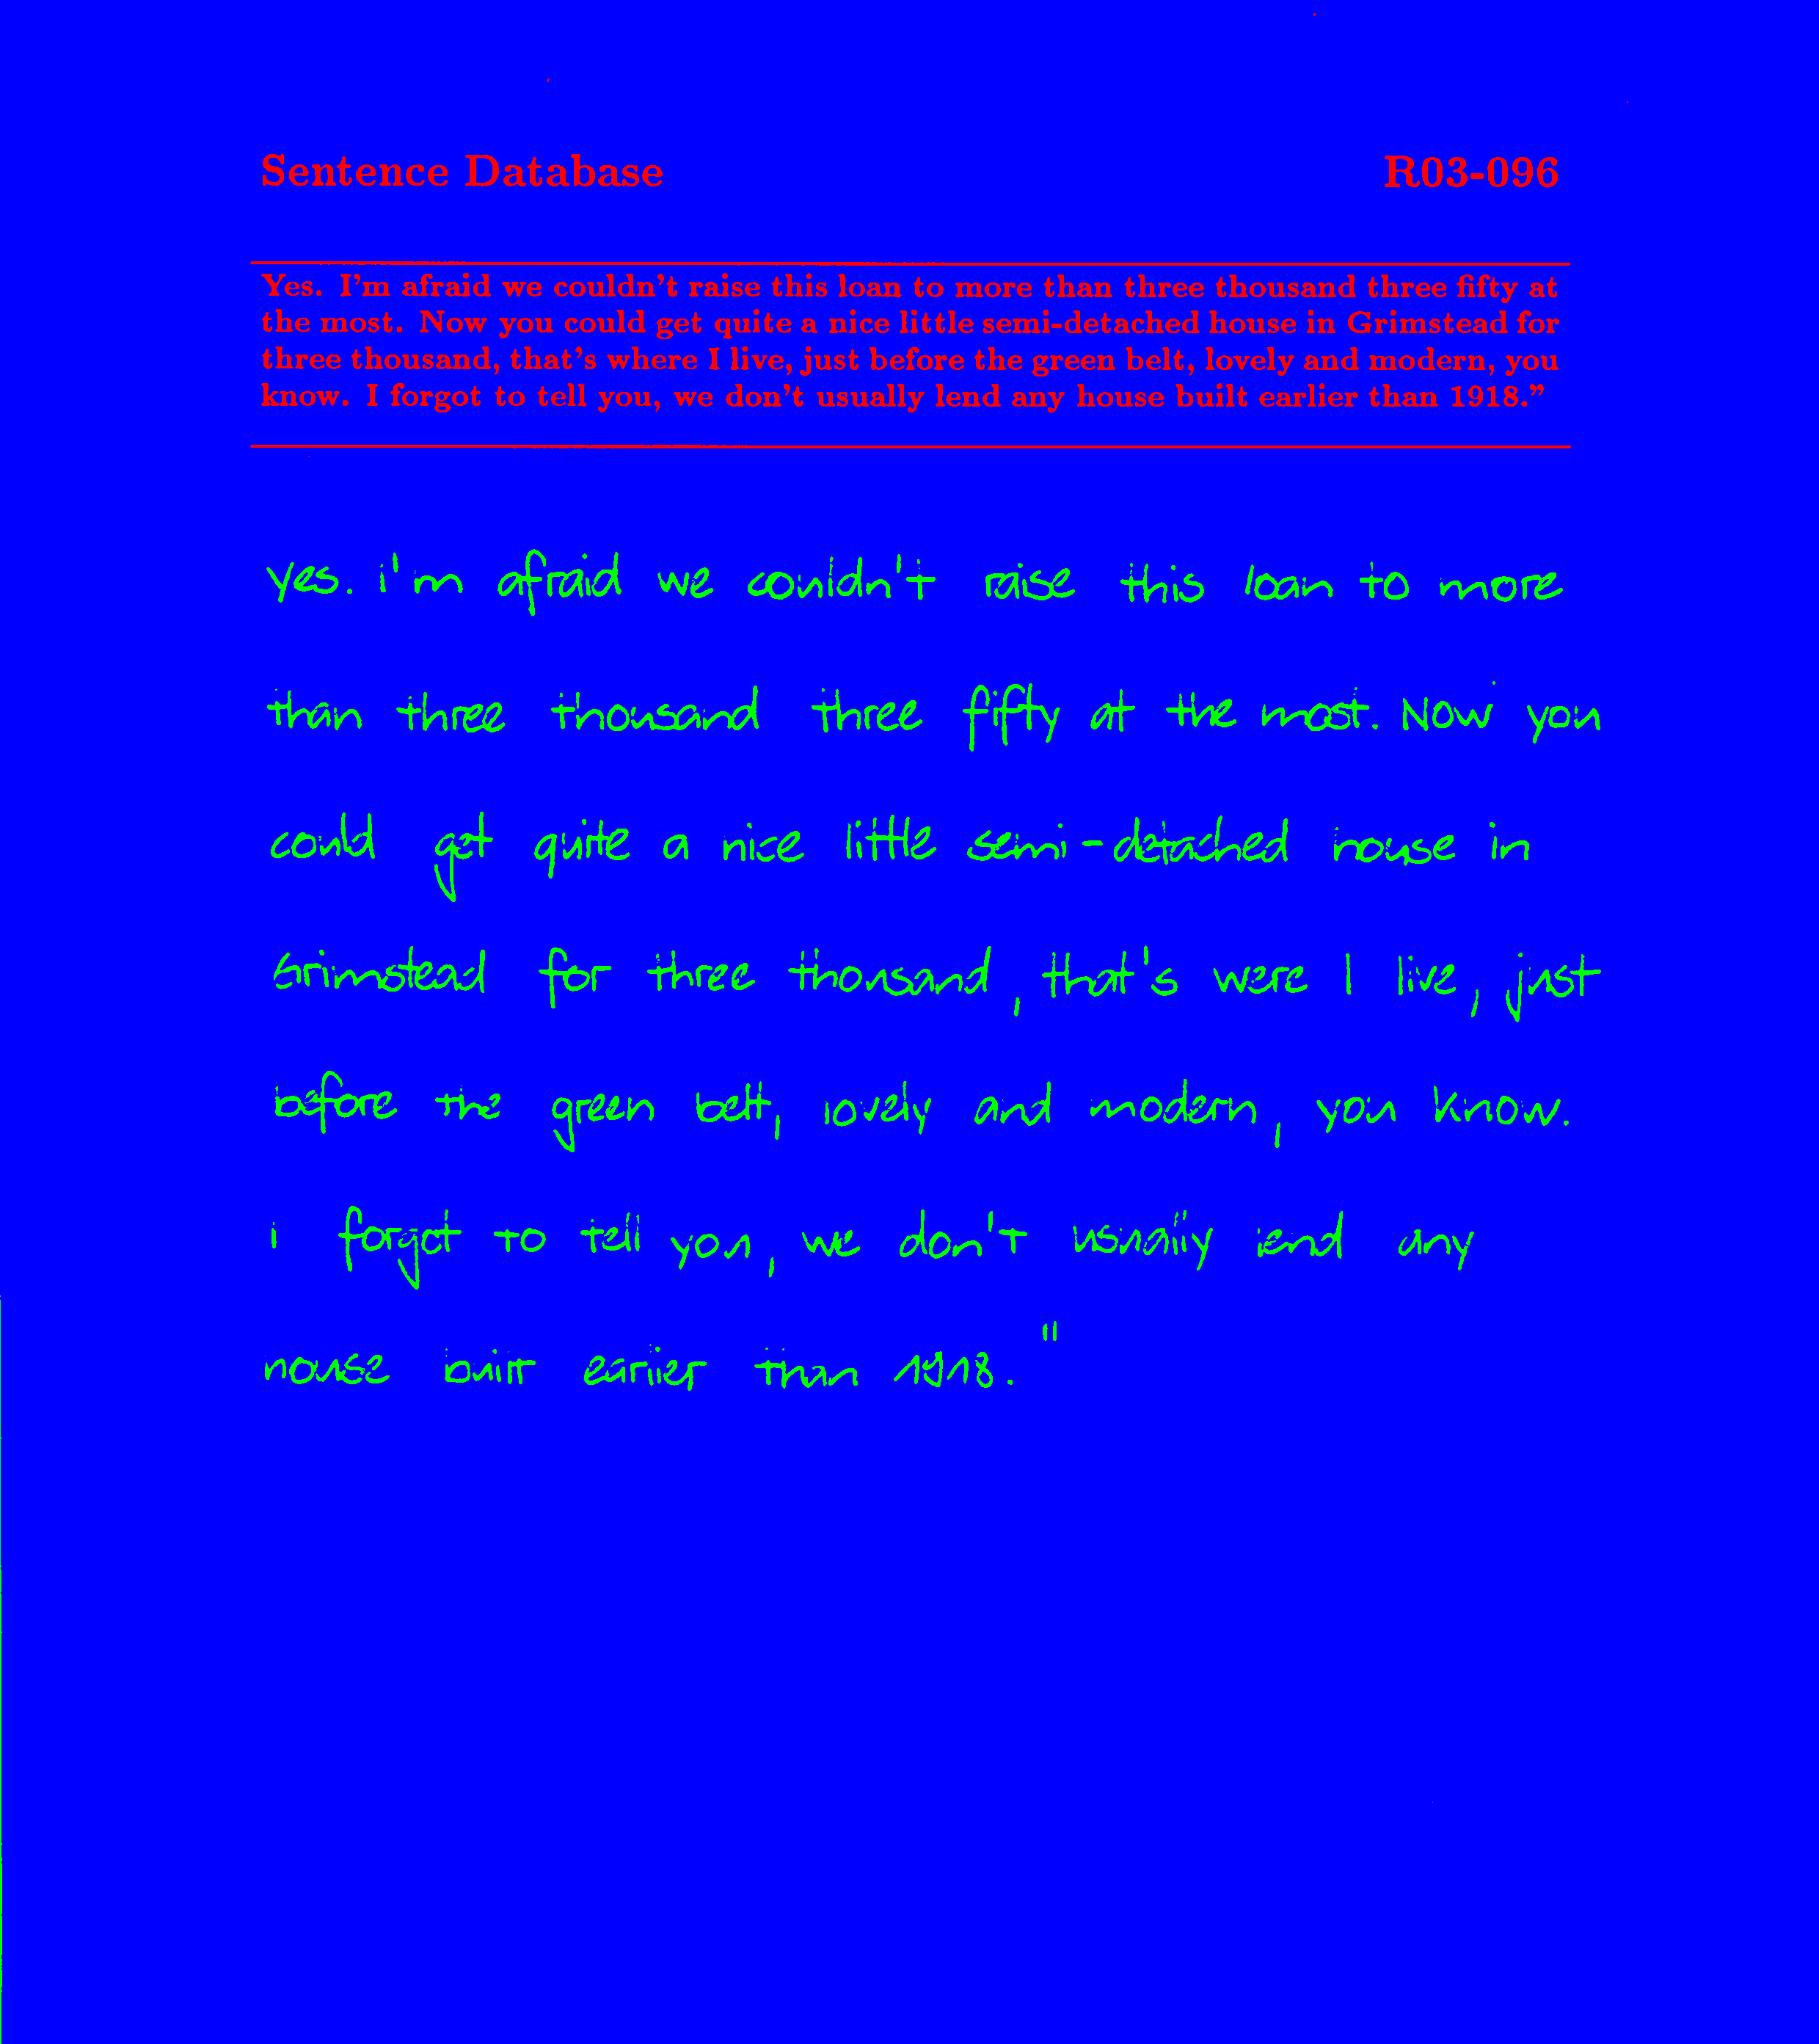 Sentence Database R03-096
Yes. I'm afraid we couldn't raise this loan to more than three thousand three fifty at
the most. Now you could get quite a nice little semi-detached house in Grimstead for
three thousand, that's where I live, just before the green belt, lovely and modern, you
know. I forgot to tell you, we don't usually lend any house built earlier than 1918.”
yes. i'm afraid we couldn't raise this loan to more
than three thousand three fifty at the most. Now you
could get quite a nice little semi-detached house in
Grimstead for three thousand, that's were I live, just
before the green belt, lovely and modern, you know.
i forgot to tell you, we don't usually lend any
house built earlier than 1918."